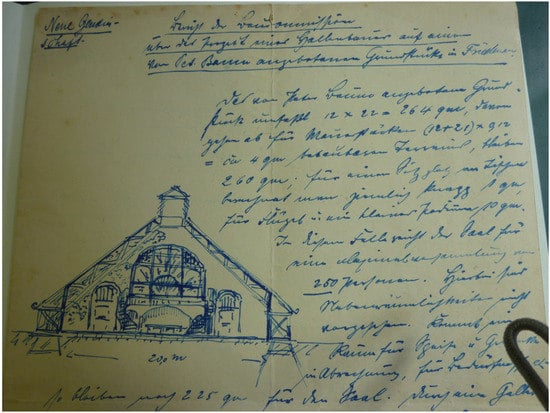 Neue Gemein-
schaft.
Bericht der Baucommission
über das Project eines Hallenbaues auf einem
von Pet. Baum angebotenen Grundstücke in Friedrichs
Das von Peter Baum angebotene Grund-
stück umfaßt 12 x 22 = 264 qm, davon
gehen ab für Mauerstärken (12+21) x 0,12
= ca 4 qm bebaubares Terrain, bleiben
260 qm; für einen Sitzplatz, an Tischen
berechnet man ziemlich knapp 1 qm
für Flügel u. ein kleines Podium 10 qm.
In diesem Falle reicht der Saal für
eine Maximalversammlung von
250 Personen. Hierbei sind
Nebenräumlichkeiten nicht
vorgesehen. Kommt ein
Raum für Speise u.
in Abrechnung, für
20,0 m
so bleiben noch 225 qm für den Saal. Durch eine